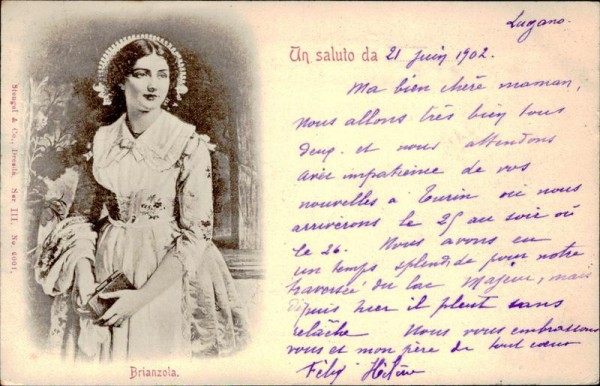 Lugano.
Un saluto da 21 Juin 1902.
Ma bien chère maman,
nous allons très bien tous
deux et nous attendons
avec impatience de vos
nouvelles à Turin où nous
arriverons le 25 au soir où
le 26. Nous avons eu
un temps splendide pour notre
traversée du lac Majeur, mais
depuis hier il pleut sans
relâche Nous vous embrassons
vous et mon père de tout cœur
Félix Hélène
Brianzola.
Stengel & Co., Dresda. Ser III. No. 6001.